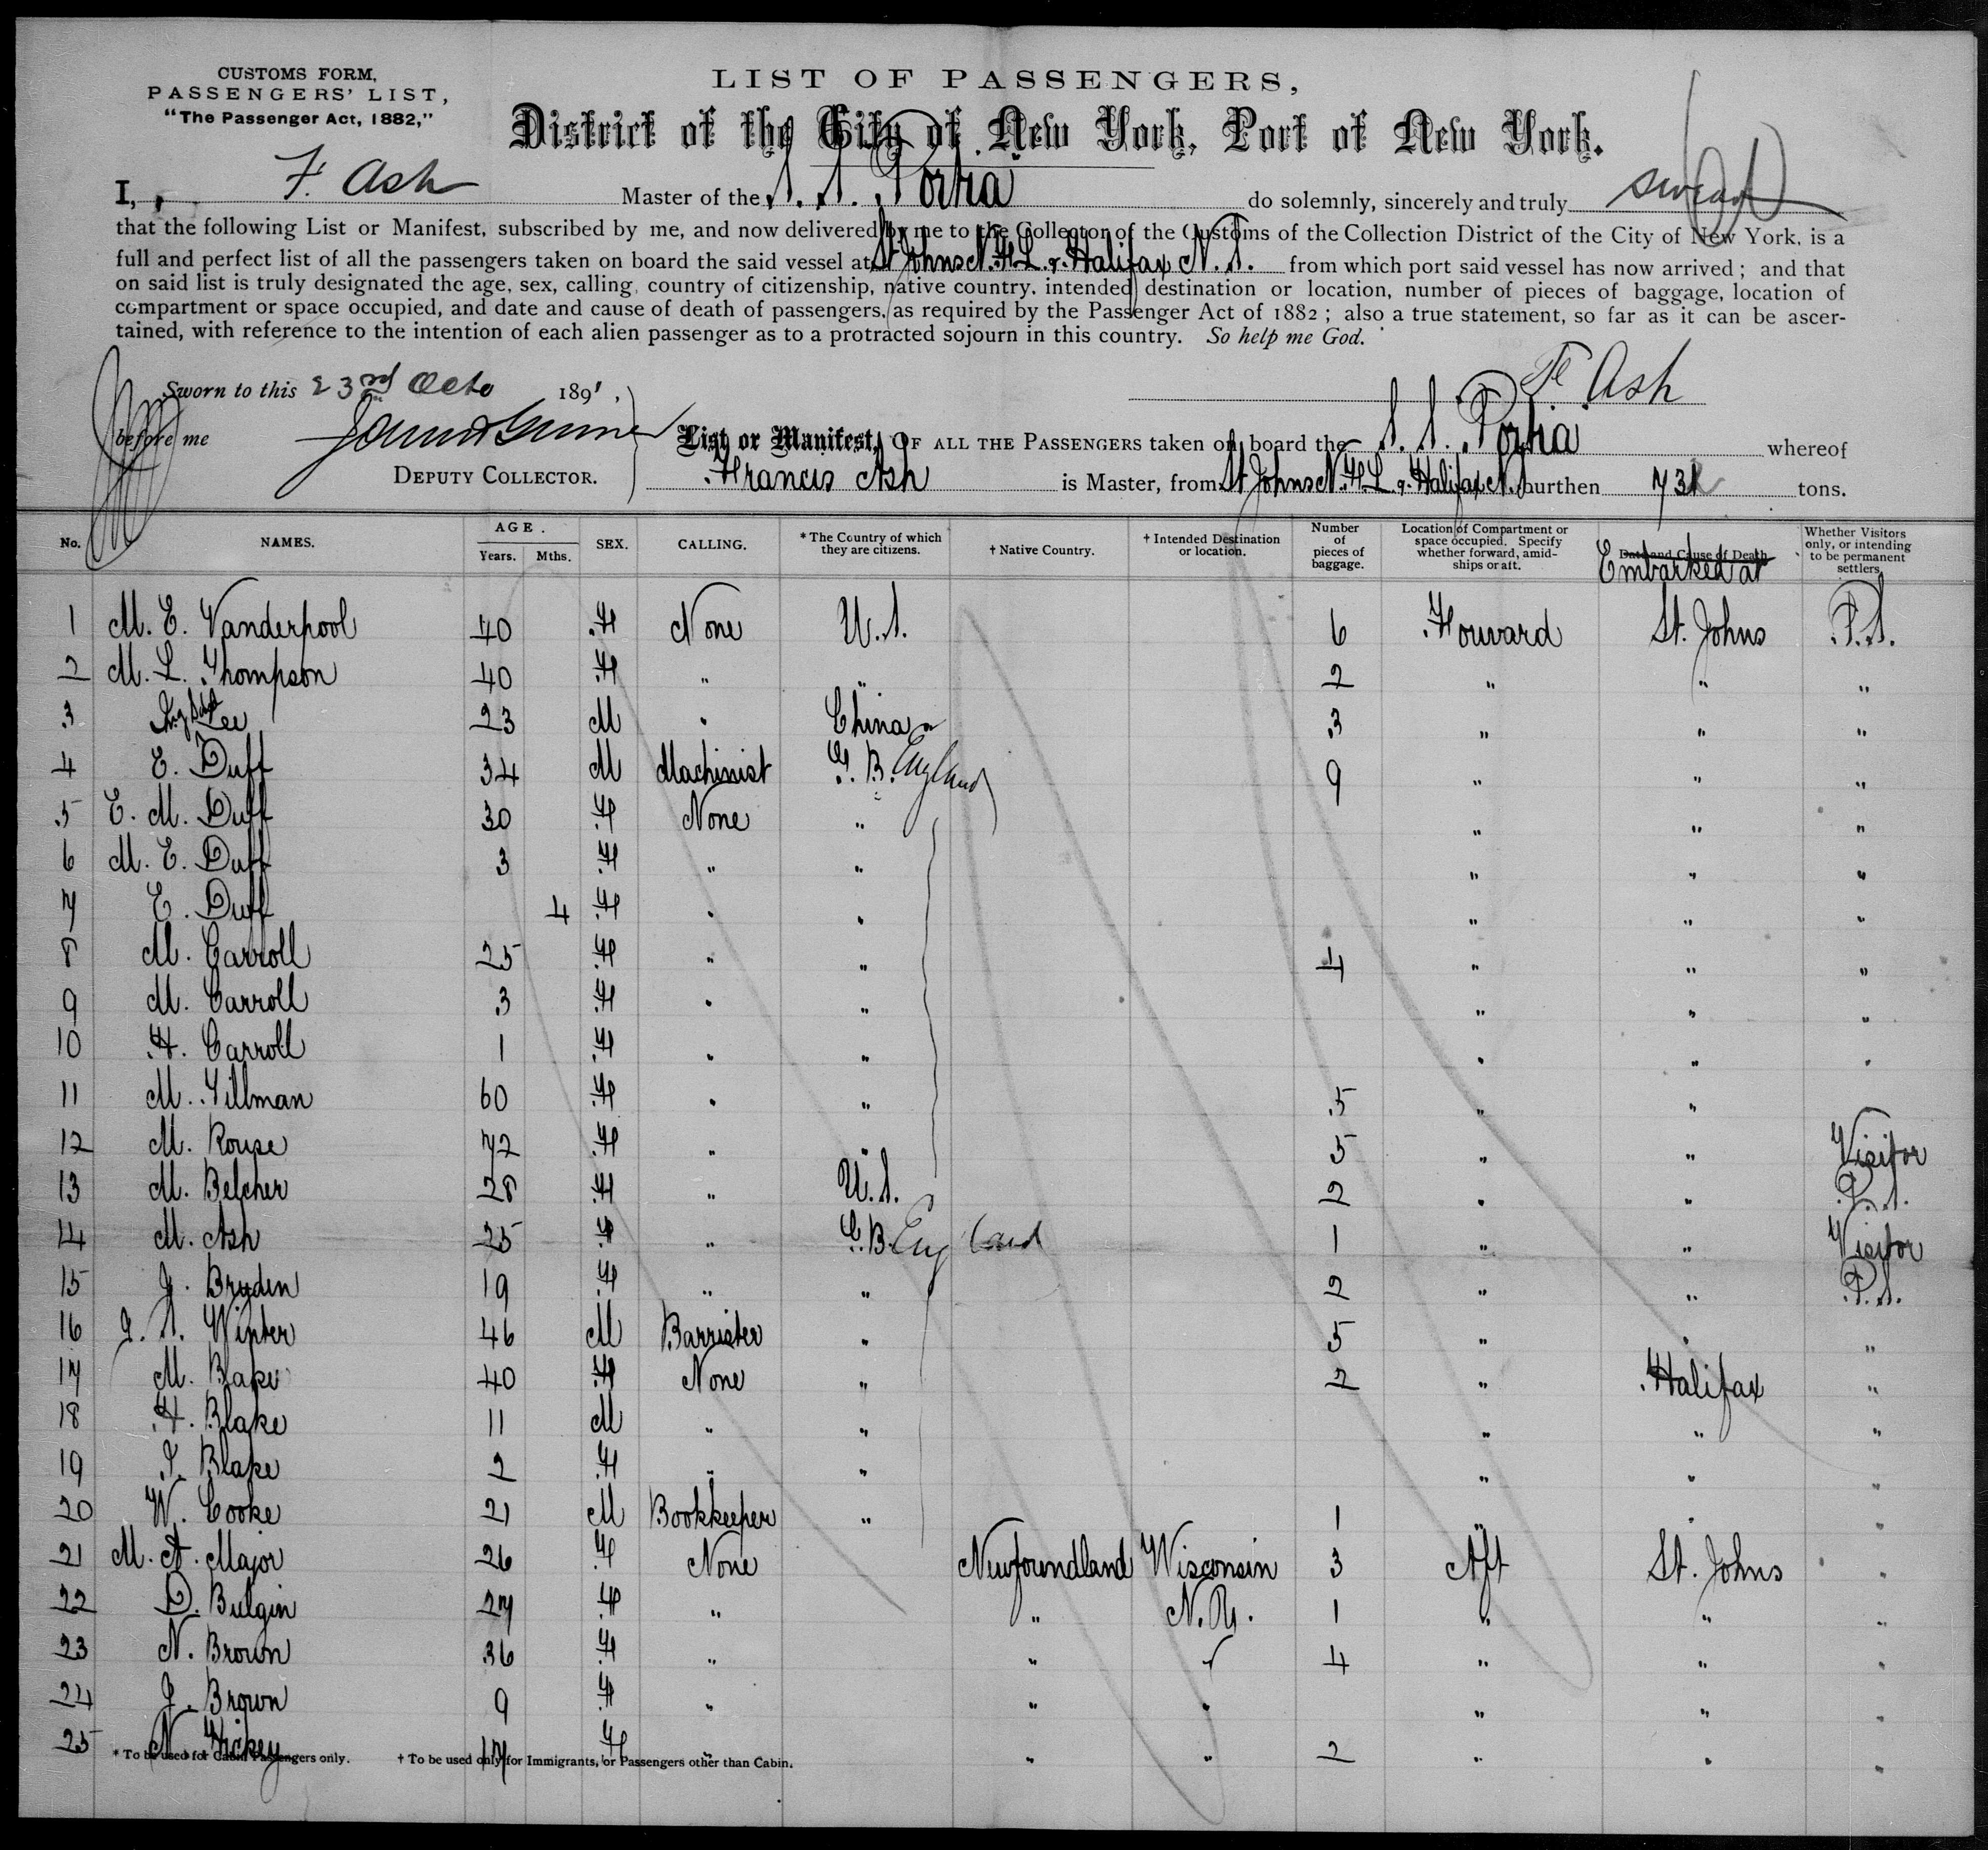 CUSTOMS FORM,
PASSENGERS' LIST,
"The Passenger Act, 1882,"
LIST OF PASSENGERS,
District of the City of New York, Port of New York.
I, F. Ash Master of the S. S. Portia do solemnly, sincerely and truly swear
that the following List or Manifest, subscribed by me, and now delivered by me to the Collector of the Customs of the Collection District of the City of New York, is a
full and perfect list of all the passengers taken on board the said vessel at St Johns N. F. L. & Halifax N. S. from which port said vessel has now arrived; and that
on said list is truly designated the age, sex, calling, country of citizenship, native country, intended destination or location, number of pieces of baggage, location of
compartment or space occupied, and date and cause of death of passengers, as required by the Passenger Act of 1882; also a true statement, so far as it can be ascer-
tained, with reference to the intention of each alien passenger as to a protracted sojourn in this country. So help me God.
Sworn to this 23rd Octo 1891,
Ash
before me
DEPUTY COLLECTOR.
List or Manifest, OF ALL THE PASSENGERS taken on board the S. S. Portia whereof
Francis Ash is Master, from St Johns N. F. L. & Halifax N. S. burthen 731 tons.
No. NAMES. AGE. Years. Mths. SEX. CALLING. * The Country of which they are citizens. † Native Country. † Intended Destination or location. Number of pieces of baggage. Location of Compartment or space occupied. Specify whether forward, amid-ships or aft. Date and Cause of Death. Embarked at Whether Visitors only, or intending to be permanent settlers.
1 M. E. Vanderpool 40 F None U. S. 6 Forward St. Johns P. S.
2 M. L. Thompson 40 F " " 2 " " "
3 Lee 23 M " China 3 " " "
4 E. Duff 34 M Machinist G. B. England 9 " " "
5 E. M. Duff 30 F None " " " "
6 M. E. Duff 3 F " " " " "
7 E. Duff 4 F " " " " "
8 M. Carroll 25 F " " 4 " " "
9 M. Carroll 3 F " " " " "
10 F. Carroll 1 F " " " " "
11 M. Tillman 60 F " " 5 " "
12 M. Rouse 72 F " " 5 " " Visitor
13 M. Belcher 28 F " U. S. 2 " " P. S.
14 M. Ash 25 F " G. B. England 1 " " Visitor
15 J. Bryden 19 F " " 2 " " P. S.
16 J. S. Winter 46 M Barrister " 5 " " "
17 M. Blake 40 F None " 2 " Halifax "
18 F. Blake 11 M " " " " "
19 Blake 2 F " " " " "
20 W. Cooke 21 M Bookkeeper " 1 " " "
21 M. A. Major 26 F None Newfoundland Wisconsin 3 Aft St. Johns "
22 D. Bulgin 27 F " " N. Y. 1 " " "
23 N. Brown 36 F " " " 4 " " "
24 J. Brown 9 F " " " " " "
25 N. Hickey 17 F " " " 2 " " "
* To be used for Cabin Passengers only. † To be used only for Immigrants, or Passengers other than Cabin.